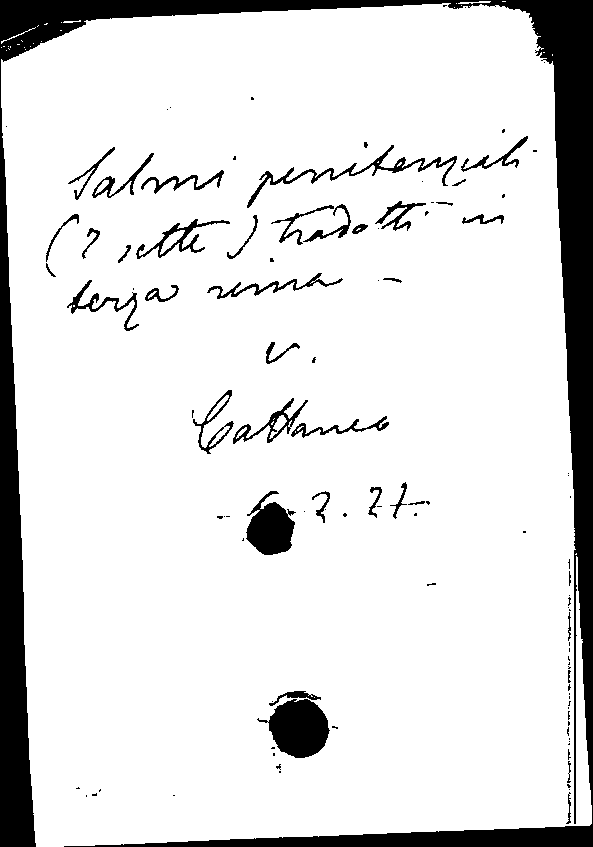 Salmi penitenziali
(7 sette) tradotti in
terza rima –
v.
Cattaneo
2.27.